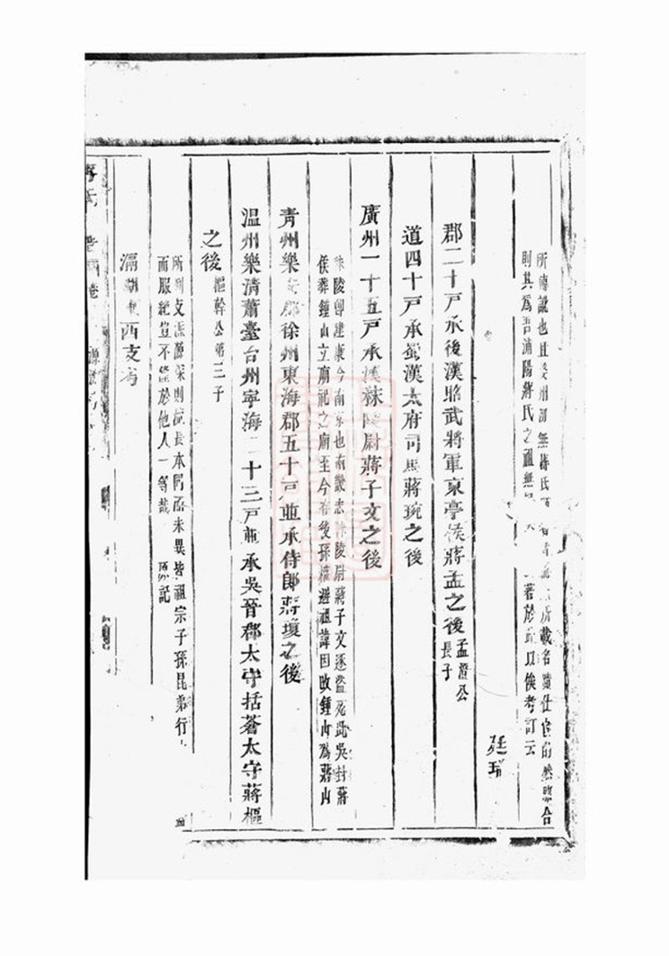 所傳訛也且長州郡無蔣氏所載名蹟仕宦的然熙合
則其為吾浦陽蔣氏之祖無著於此以俟考訂云
廷瑞
郡二十戶承後漢昭武將軍東亭侯蔣孟之後孟澄公長子
道四十戶承蜀漢太府司馬蔣琬之後
廣州一十五戶承漢秣陵尉蔣子文之後
秣陵曾建康今南京也南徵志秣陵尉蔣子文逐盜死此吳封蔣
侯葬鍾山立廟祀之廟至今存後孫權避祖諱因改鍾山為蔣山
青州樂安郡徐州東海郡五十戶並承侍郎蔣瓊之後
溫州樂清蕭臺台州寧海二十三戶並承吳晉郡太守括蒼太守蔣樞
之後樞幹公第三子
所列支派源深則流長本同而末異皆祖宗子孫昆弟行
而服絕豈不愈於他人一等哉
滆湖東西支考